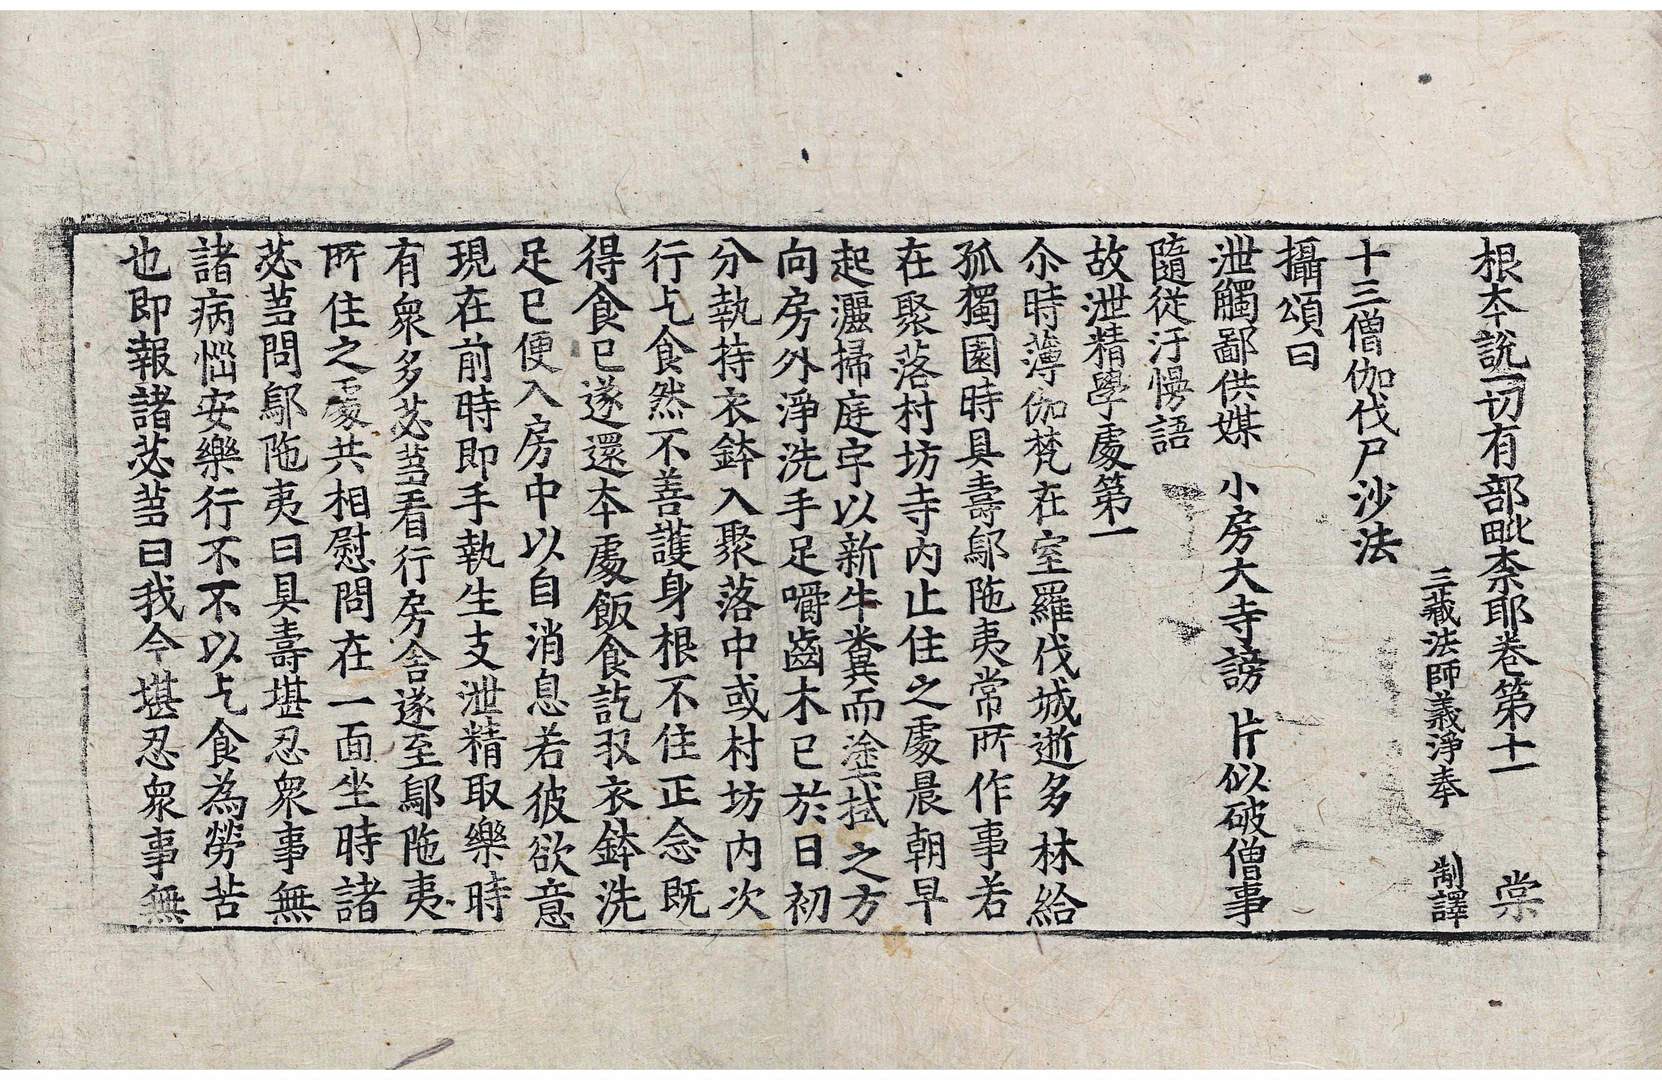 根本説一切有部毗柰耶卷第十一 棠
三藏法師義淨奉 制譯
十三僧伽伐尸沙法
攝頌曰
泄觸鄙供媒 小房大寺謗 片似破僧事
隨從汙慢語
故泄精學處第一
尒時薄伽梵在室羅伐城逝多林給
孤獨園時具壽鄔陁夷常所作事若
在聚落村坊寺内止住之處晨朝早
起灑掃庭宇以新牛糞而塗拭之方
向房外淨洗手足嚼齒木已於日初
分執持衣鉢入聚落中或村坊内次
行乞食然不善護身根不住正念既
得食已遂還本處飯食訖収衣鉢洗
足已便入房中以自消息若彼欲意
現在前時即手執生支泄精取樂時
有衆多苾芻看行房舍遂至鄔陁夷
所住之處共相慰問在一面坐時諸
苾芻問鄔陁夷曰具壽堪忍衆事無
諸病惱安樂行不不以乞食為勞苦
也即報諸苾芻曰我今堪忍衆事無